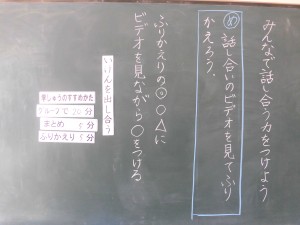 みんなで話し合う力をつけよう
め 話し合いのビデオを見てふり
かえろう。
ふりかえりの◎○△に
ビデオを見ながら○をつける
いけんを出し合う
学しゅうのすすめかた
グループで 20分
まとめ 5分
ふりかえり 5分